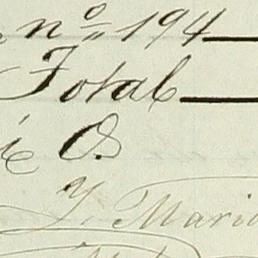 nº 194
Total
O.
Y. Maria